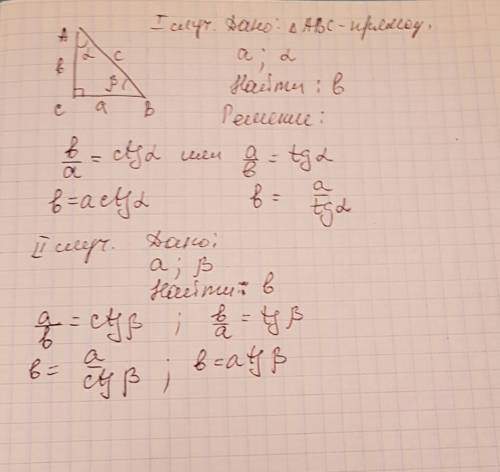 I случ. Дано: △ABC - прямоуг.
A
α
c
в
a; α
β
Найти: в
C a B
Решение:
в/α = ctg α или a/в = tg α
в = a ctg α в = a/tg α
II случ. Дано:
a; β
Найти: в
a/в = ctg β ; в/a = tg β
в = a/ctg β ; в = a tg β